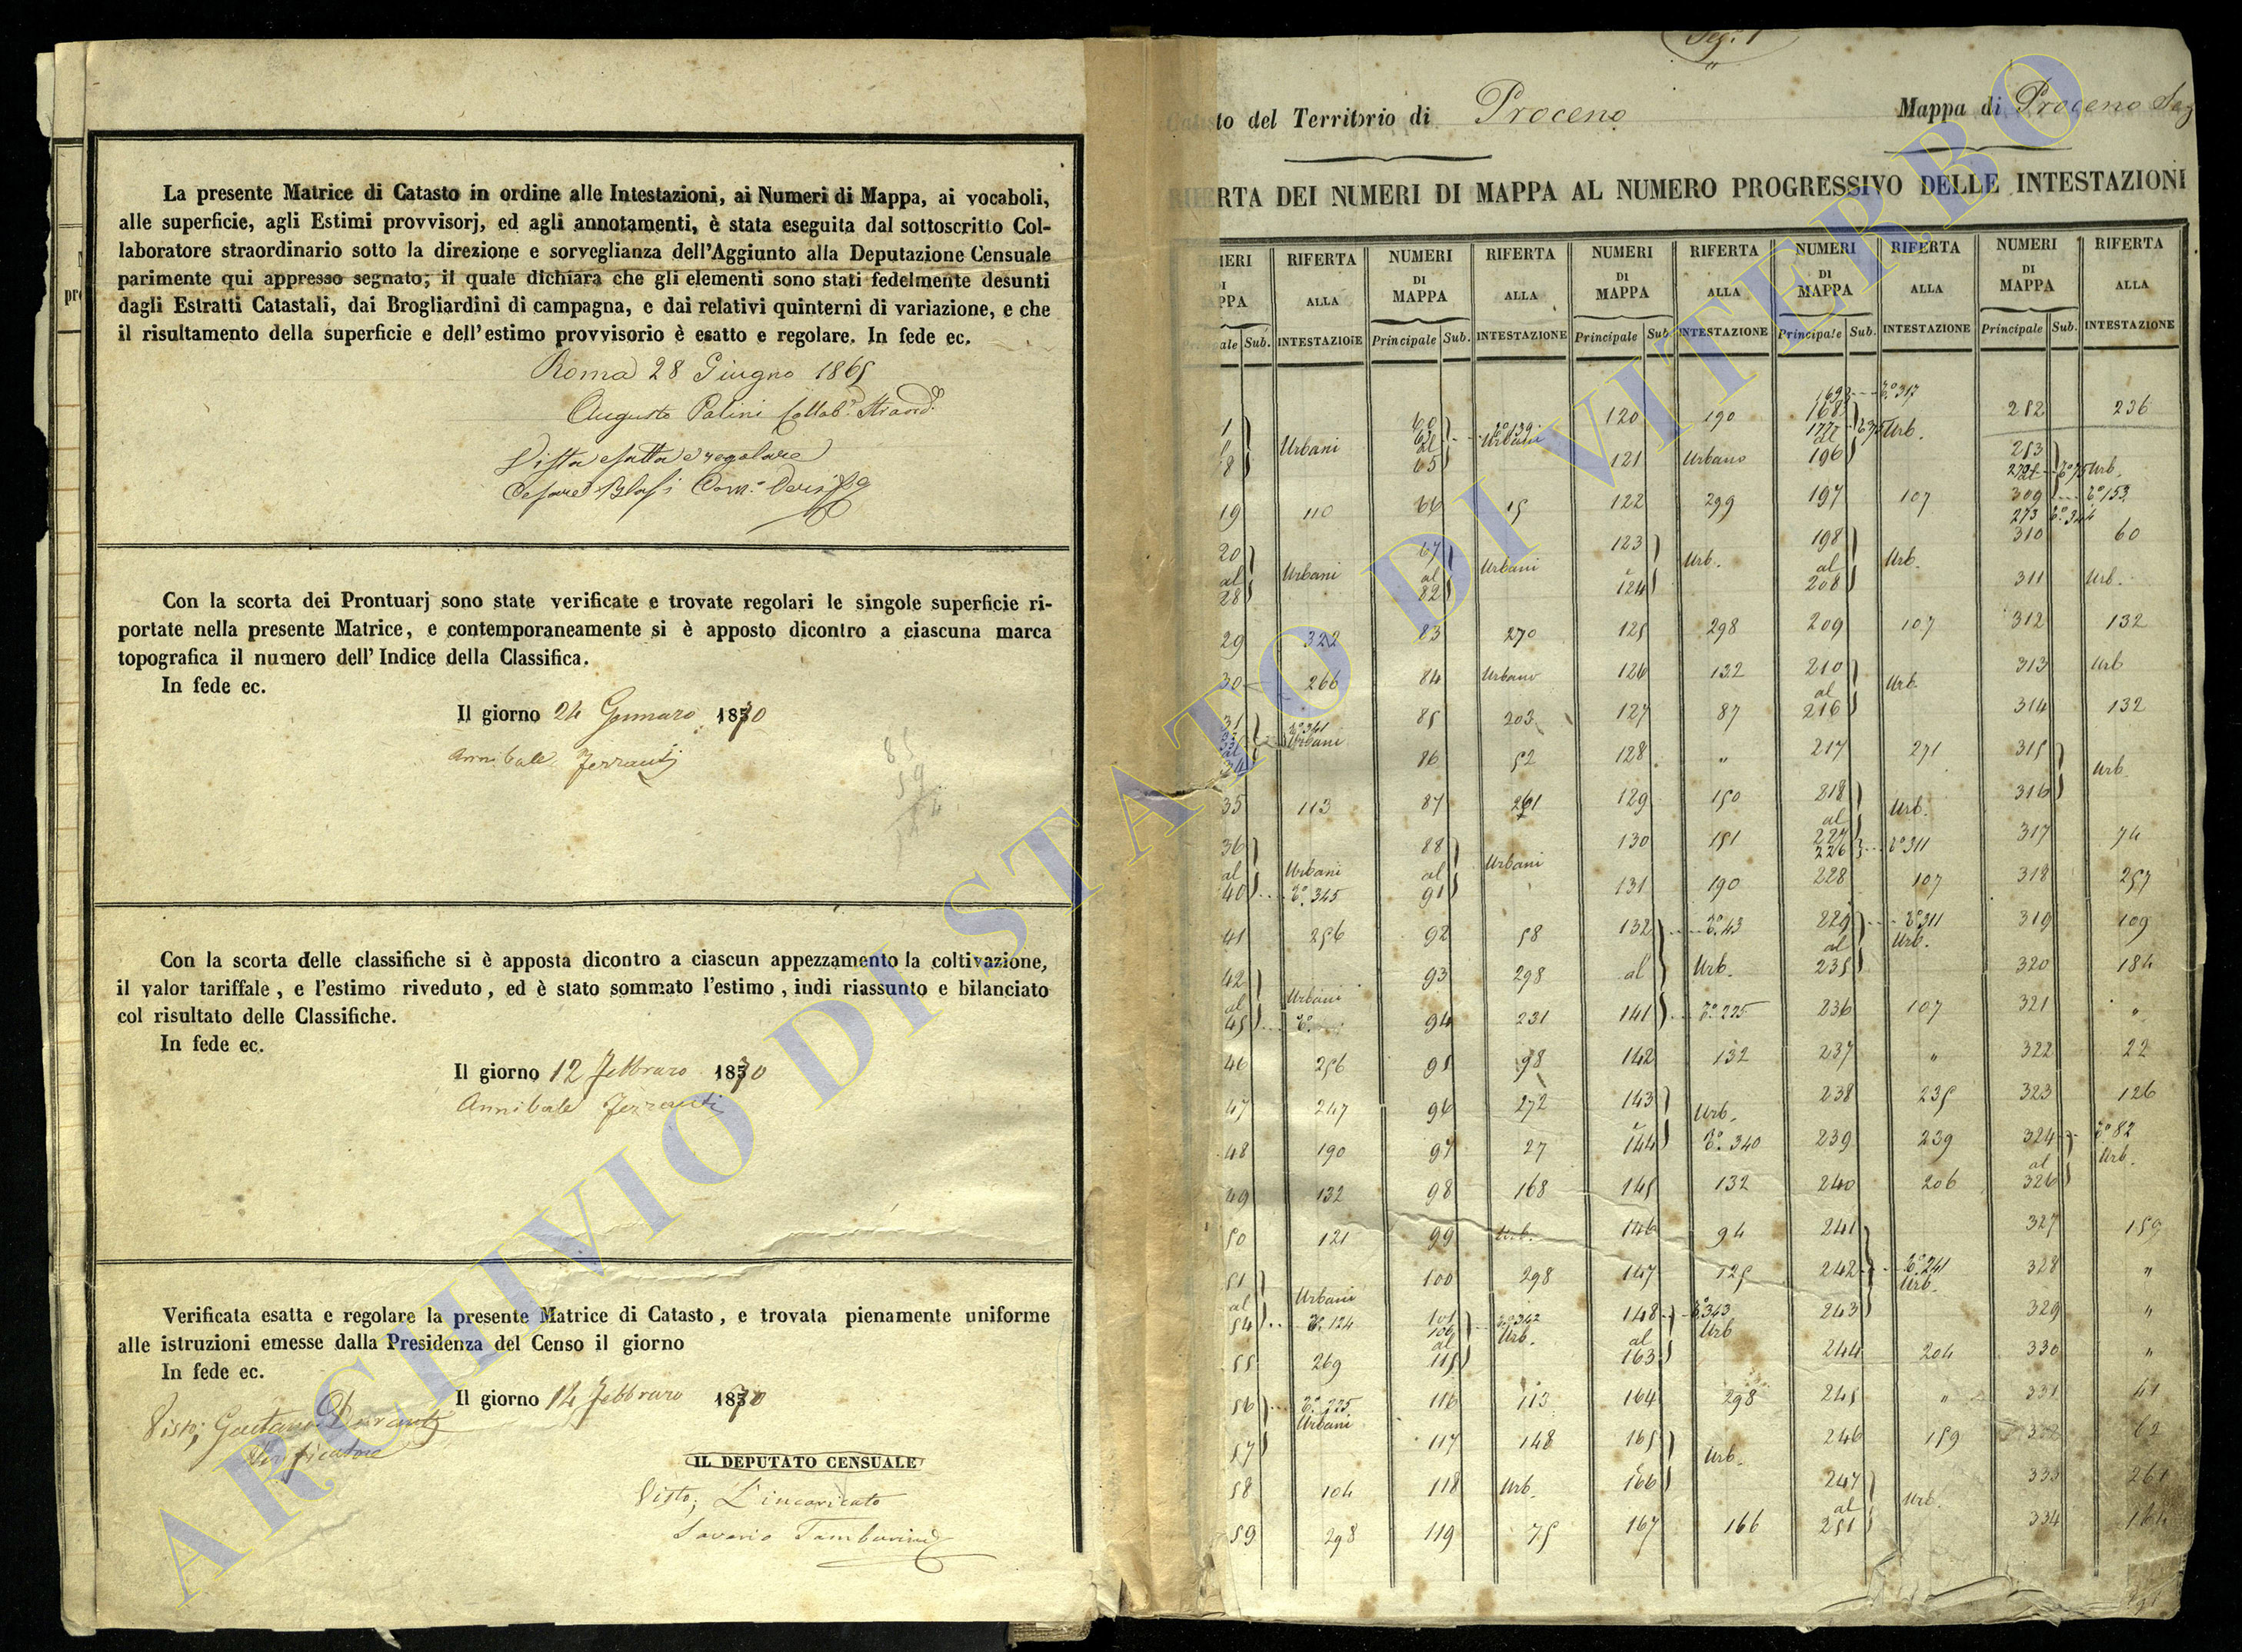 La presente Matrice di Catasto in ordine alle Intestazioni, ai Numeri di Mappa, ai vocaboli,
alle superficie, agli Estimi provvisorj, ed agli annotamenti, è stata eseguita dal sottoscritto Col-
laboratore straordinario sotto la direzione e sorveglianza dell'Aggiunto alla Deputazione Censuale
parimente qui appresso segnato; il quale dichiara che gli elementi sono stati fedelmente desunti
dagli Estratti Catastali, dai Brogliardini di campagna, e dai relativi quinterni di variazione, e che
il risultamento della superficie e dell'estimo provvisorio è esatto e regolare. In fede ec.
Roma 28 Giugno 1865
Augusto Palini Collab.e Straord.
Vista esatta e regolare
Con la scorta dei Prontuarj sono state verificate e trovate regolari le singole superficie ri-
portate nella presente Matrice, e contemporaneamente si è apposto dicontro a ciascuna marca
topografica il numero dell'Indice della Classifica.
In fede ec.
Il giorno 24 Gennaro 1870
Annibale Ferranti
Con la scorta delle classifiche si è apposta dicontro a ciascun appezzamento la coltivazione,
il valor tariffale, e l'estimo riveduto, ed è stato sommato l'estimo, indi riassunto e bilanciato
col risultato delle Classifiche.
In fede ec.
Il giorno 12 Febbraro 1870
Annibale Ferranti
Verificata esatta e regolare la presente Matrice di Catasto, e trovata pienamente uniforme
alle istruzioni emesse dalla Presidenza del Censo il giorno
In fede ec.
Il giorno 14 Febbraro 1870
Visto; Gaetano
Verificatore
IL DEPUTATO CENSUALE
Visto; L'incaricato
Saverio Tamburini
Seg. 1
Catasto del Territorio di Proceno
Mappa di Proceno Seg
RIFERTA DEI NUMERI DI MAPPA AL NUMERO PROGRESSIVO DELLE INTESTAZIONI
NUMERI DI MAPPA RIFERTA ALLA INTESTAZIONE NUMERI DI MAPPA RIFERTA ALLA INTESTAZIONE NUMERI DI MAPPA RIFERTA ALLA INTESTAZIONE NUMERI DI MAPPA RIFERTA ALLA INTESTAZIONE NUMERI DI MAPPA RIFERTA ALLA INTESTAZIONE
Principale Sub. Principale Sub. Principale Sub. Principale Sub. Principale Sub.
1 Urbani
19 110
20 al 28 Urbani
29 322
30 266
35 113
36 al 40 Urbani 345
41 256
42 al 45 Urbani
46 256
47 247
48 190
49 132
50 121
51 al 54 Urbani 124
55 269
56 225 Urbani
57
58 104
59 298
65
66 15
67 al 82 Urbani
83 270
84 Urbano
85 203
86 52
87 261
88 al 91 Urbani
92 58
93 298
94 231
95 98
96 272
97 27
98 168
99 Urb.
100 298
101 106 al 115 342 Urb.
116 113
117 148
118 Urb.
119 75
120 190
121 Urbano
122 299
123 124 Urb.
125 298
126 132
127 87
128 "
129 150
130 151
131 190
132 al 141 43 Urb. 225
142 132
143 144 Urb. 340
145 132
146 94
147 125
148 al 163 343 Urb
164 298
165 166 Urb.
167 166
168 al 196 Urb.
197 107
198 al 208 Urb.
209 107
210 al 216 Urb
217 271
218 al 227 Urb.
226 311
228 107
229 al 235 311 Urb.
236 107
237 "
238 235
239 239
240 206
241 242 243 241 Urb.
244 204
245 "
246 159
247 al 251 Urb.
252 236
253 Urb.
309 153
310 60
311 Urb.
312 132
313 Urb
314 132
315 316 Urb.
317 74
318 257
319 109
320 184
321 "
322 22
323 126
324 al 326 82 Urb.
327 159
328 "
329 "
330 "
331 41
333 261
334
ARCHIVIO DI STATO DI VITERBO